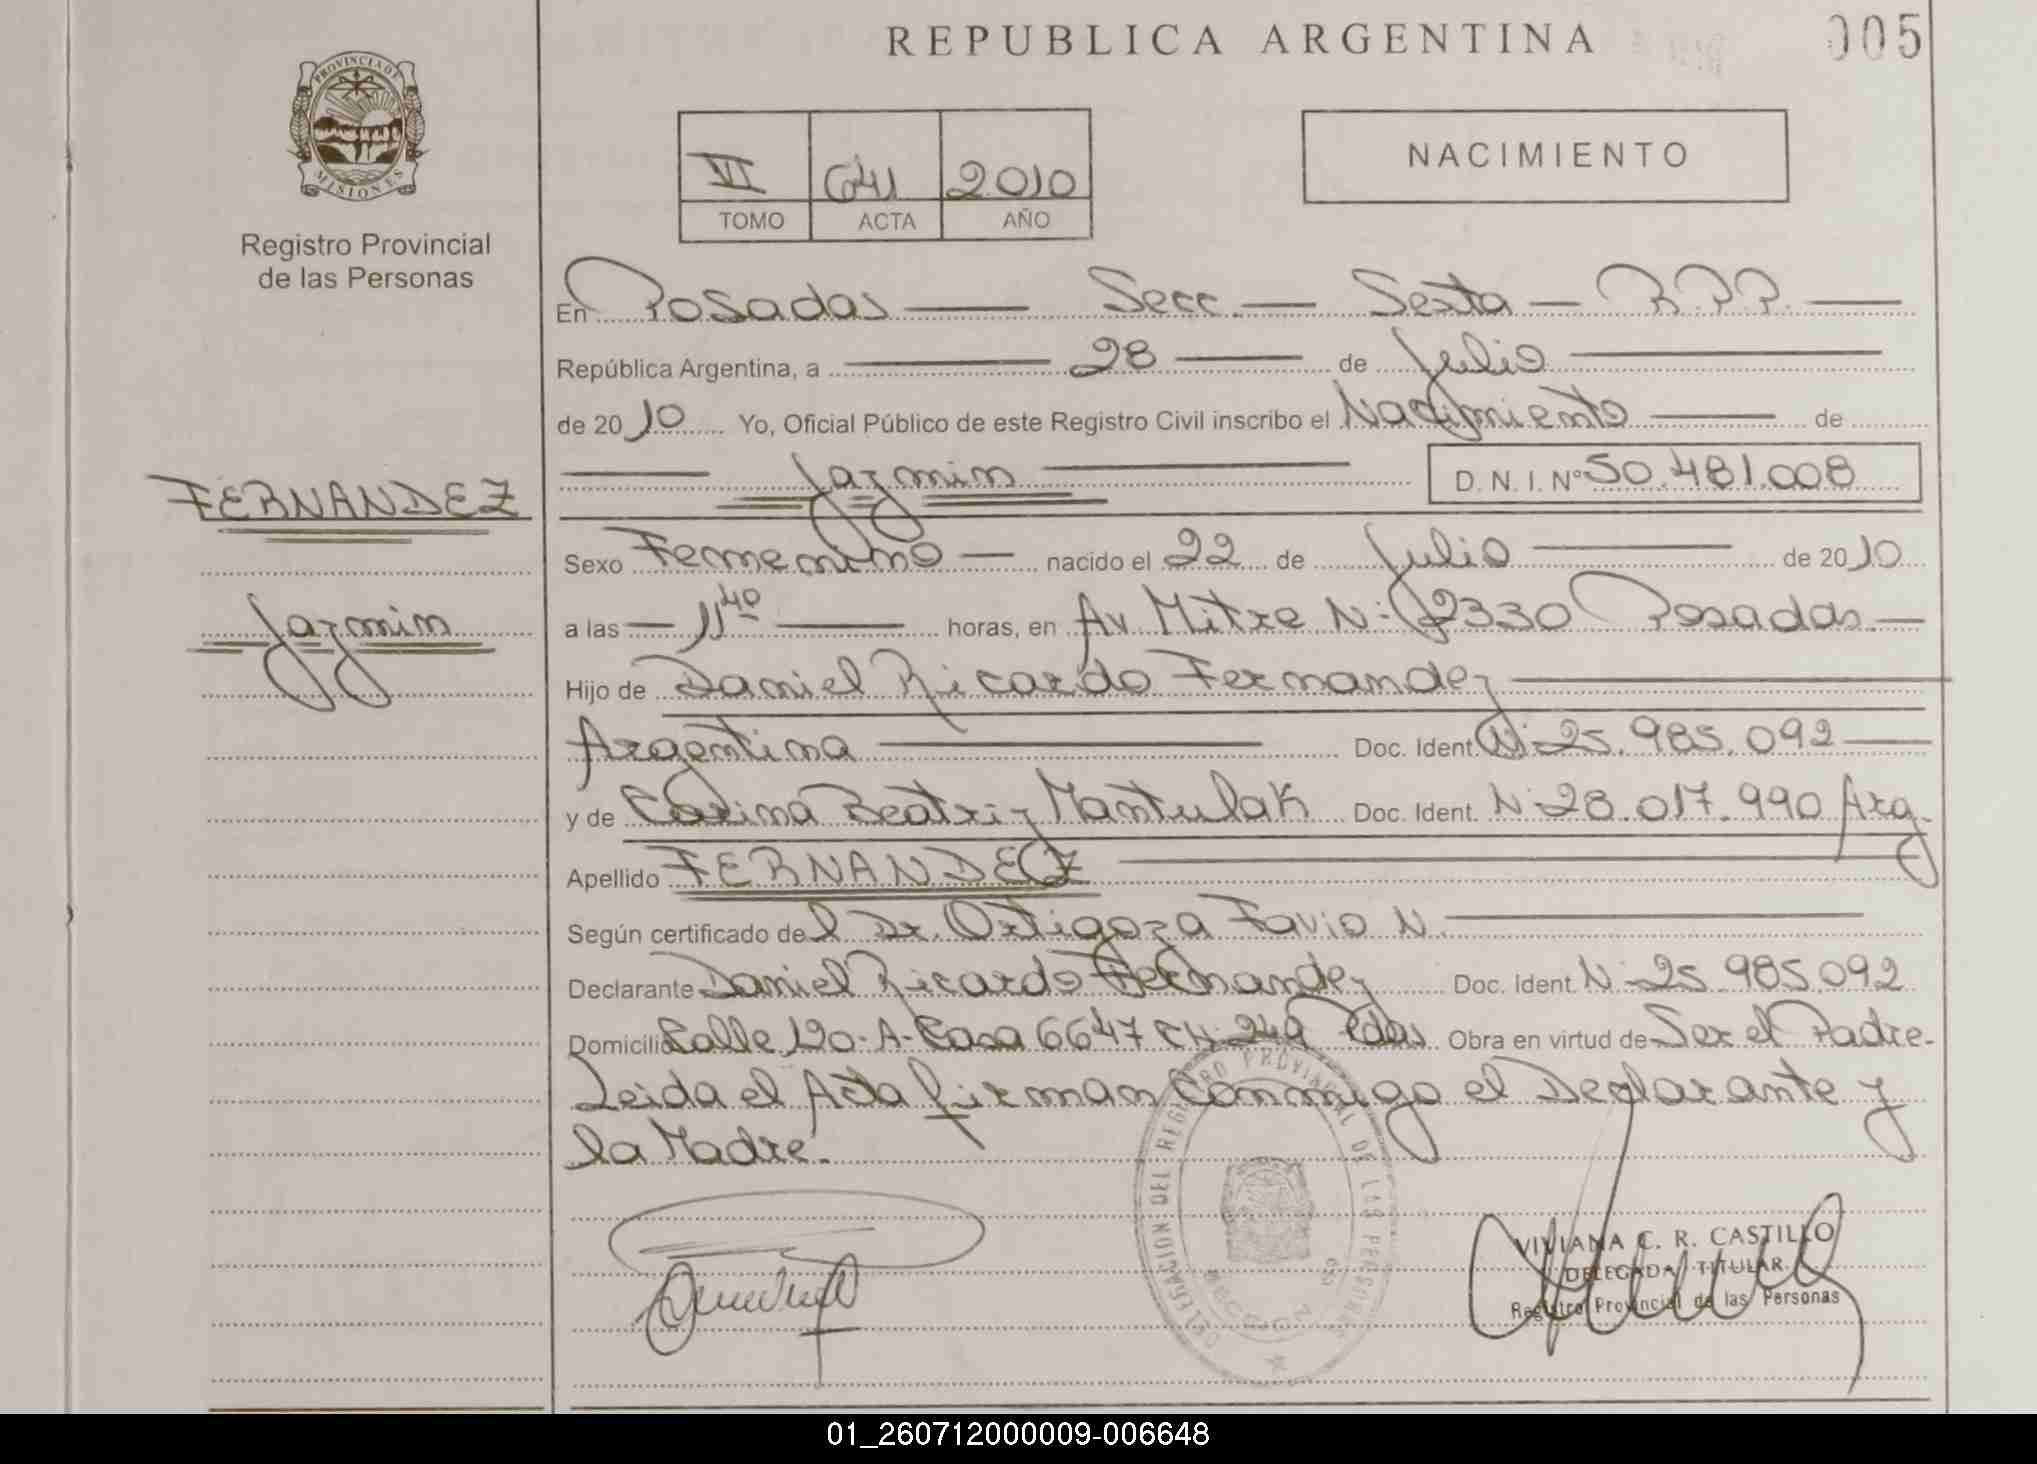 REPUBLICA ARGENTINA
005
PROVINCIA DE
MISIONES
Registro Provincial
de las Personas
VI 641 2010
TOMO ACTA AÑO
NACIMIENTO
En Posadas Secc. Sexta R.P.P.
República Argentina, a 28 de Julio
de 2010 Yo, Oficial Público de este Registro Civil inscribo el Nacimiento de
Jazmin D. N. I. Nº 50.481.008
FERNANDEZ
Jazmin
Sexo Femenino nacido el 22 de Julio de 2010
a las 11 40 horas, en Av. Mitre Nº 2330 Posadas.
Hijo de Daniel Ricardo Fernandez
Argentina Doc. Ident. Nº 25.985.092
y de Carina Beatriz Mantulak Doc. Ident. Nº 28.017.990 Arg.
Apellido FERNANDEZ
Según certificado del Dr. Ortigoza Favio N.
Declarante Daniel Ricardo Fernandez Doc. Ident. Nº 25.985.092
Domicilio Calle 120-A-Casa 6647 CH. 249 Pdas. Obra en virtud de Ser el Padre.
Leida el Acta firman Conmigo el Declarante y
la Madre.
DELEGACION DEL REGISTRO PROVINCIAL DE LAS PERSONAS
VIVIANA C. R. CASTILLO
DELEGADA TITULAR
Registro Provincial de las Personas
01_260712000009-006648